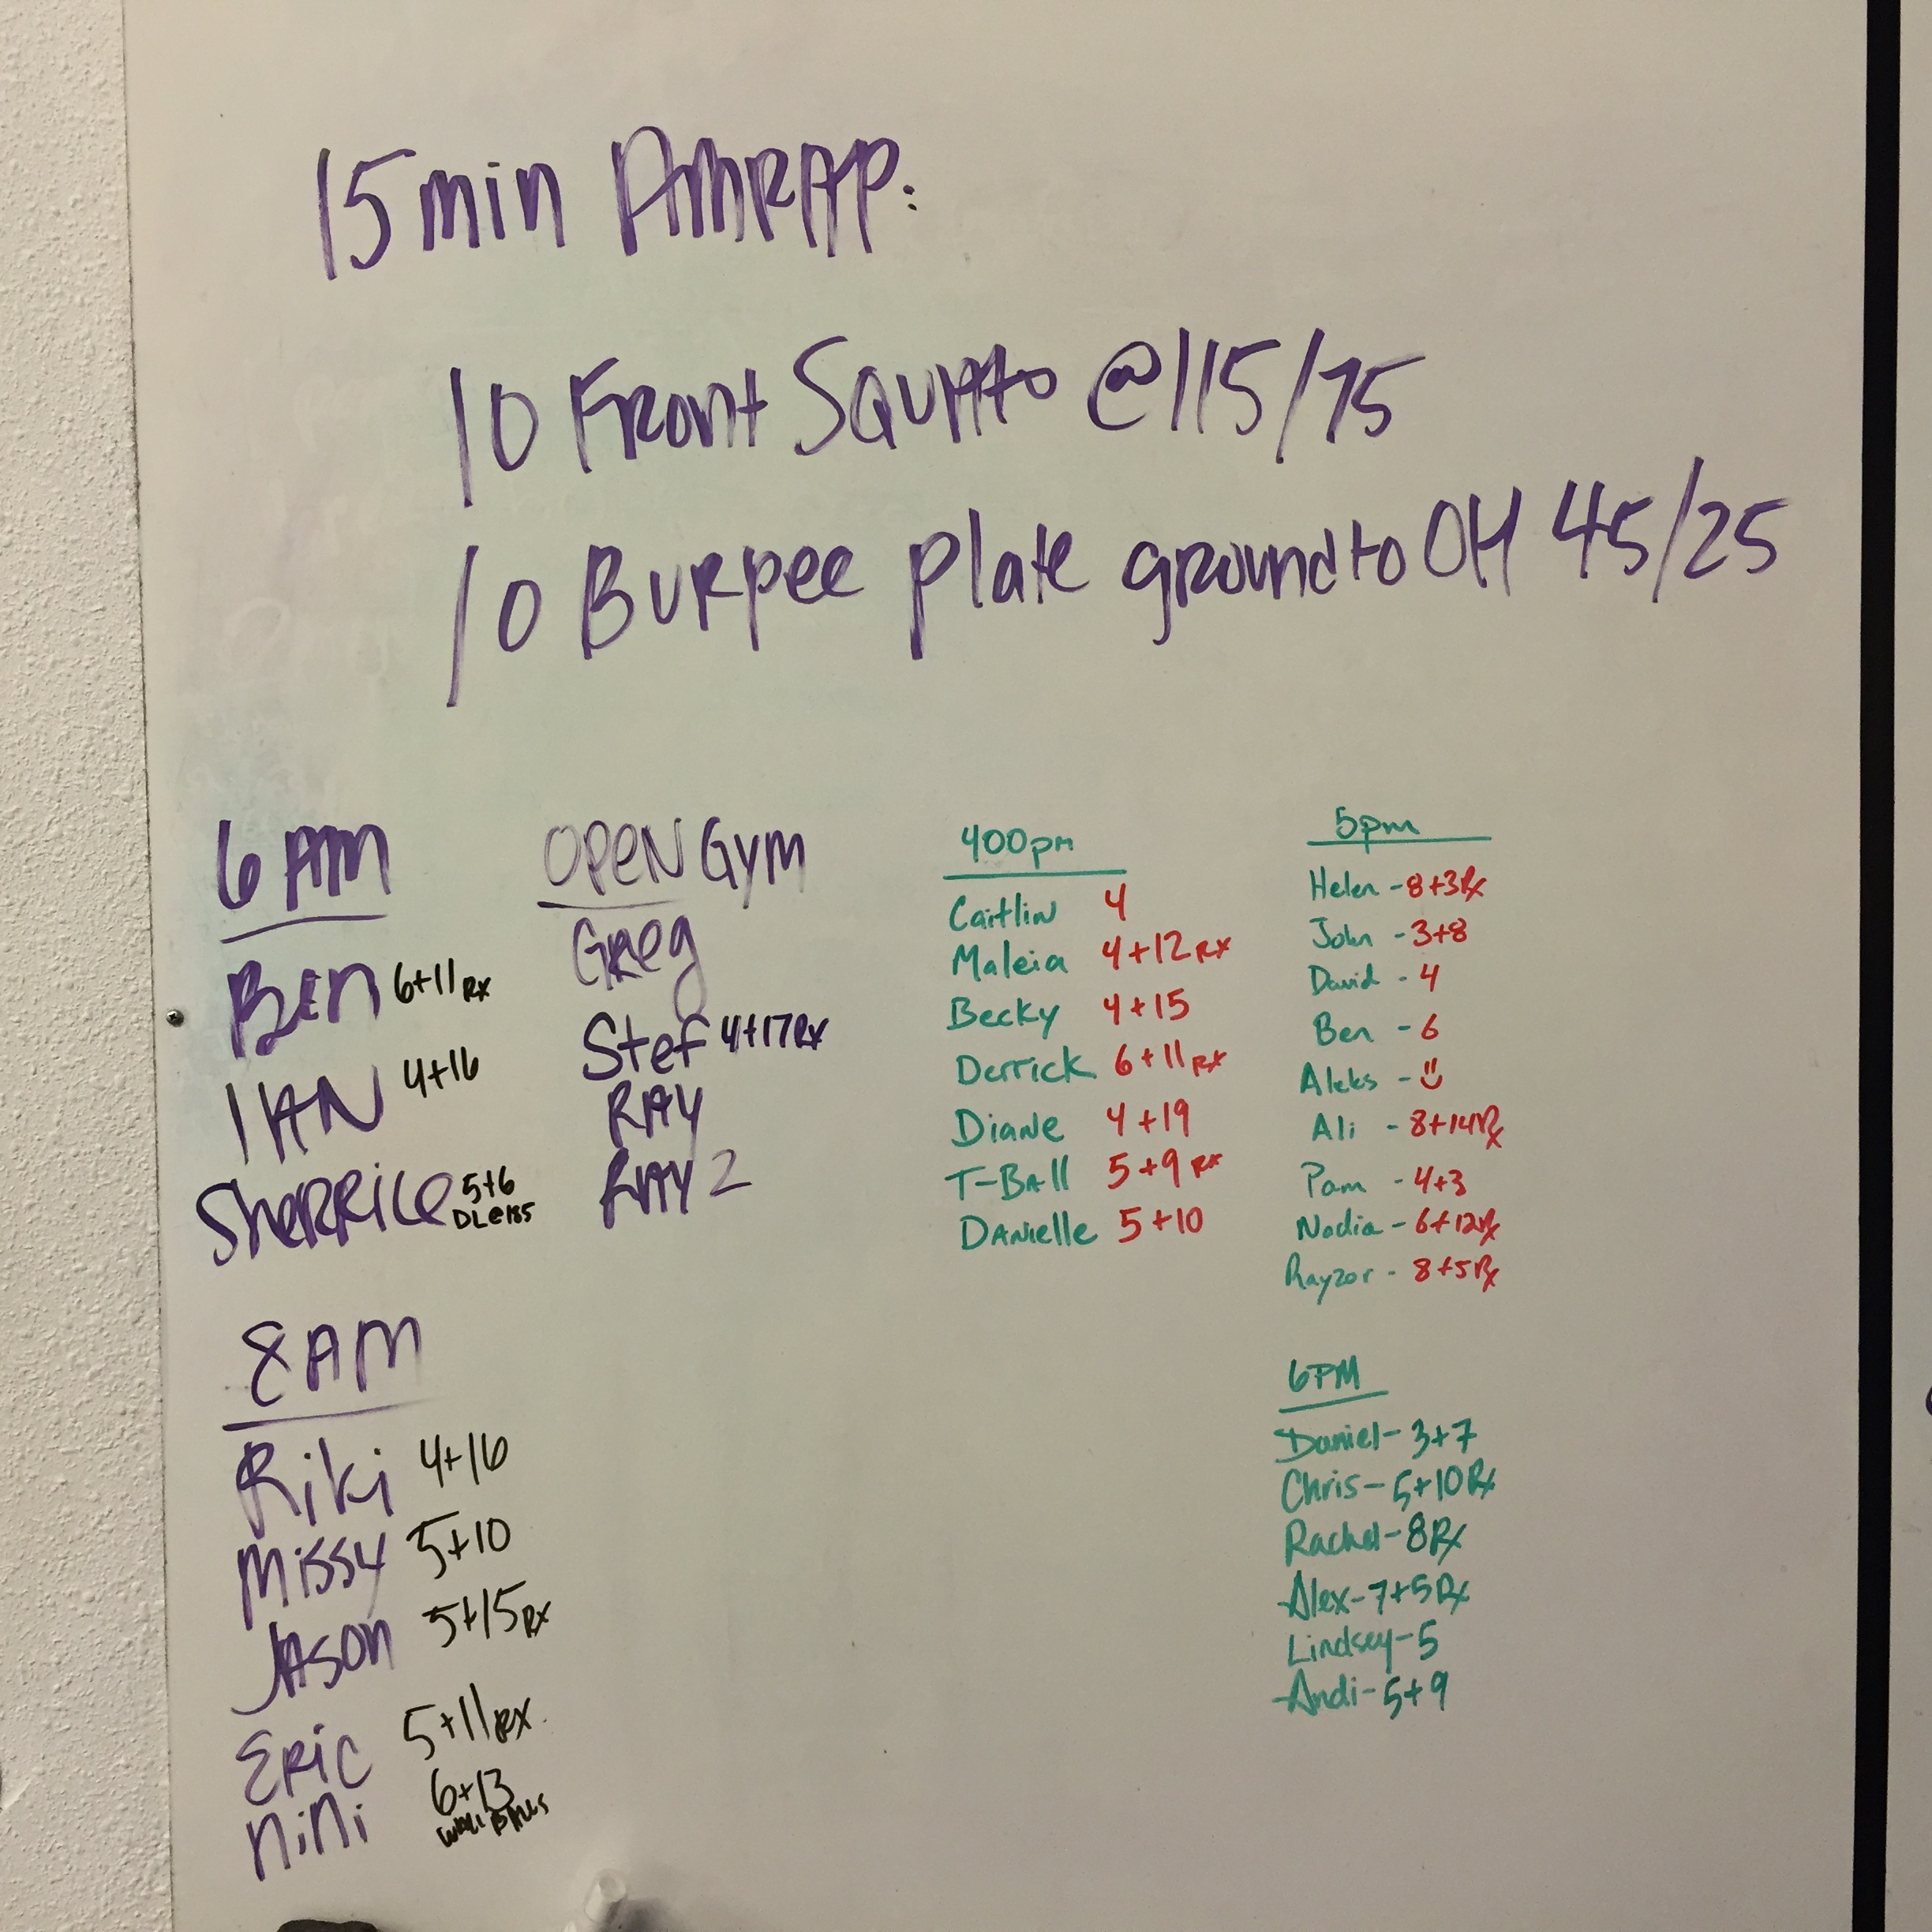 15 min AMRAP:
10 Front Squats @115/75
10 Burpee plate ground to OH 45/25
6 AM
Ben 6+11 Rx
IAN 4+16
Sherrice 5+6
DL@185
8 AM
Riki 4+16
Missy 5+10
JASON 5+15 Rx
ERIC 5+11 RX
NiNi 6+13
WALL BALLS
OPEN GYM
Greg
Stef 4+17 Rx
RAY
RAY 2
400pm
Caitlin 4
Maleia 4+12 RX
Becky 4+15
Derrick 6+11 RX
Diane 4+19
T-BAll 5+9 RX
DANielle 5+10
5pm
Helen - 8+3 Rx
John - 3+8
David - 4
Ben - 6
Aleks -
Ali - 8+14 Rx
Pam - 4+3
Nadia - 6+12 Rx
Rayzor - 8+5 Rx
6PM
Daniel - 3+7
Chris - 5+10 Rx
Rachel - 8 Rx
Alex - 7+5 Rx
Lindsey - 5
Andi - 5+9